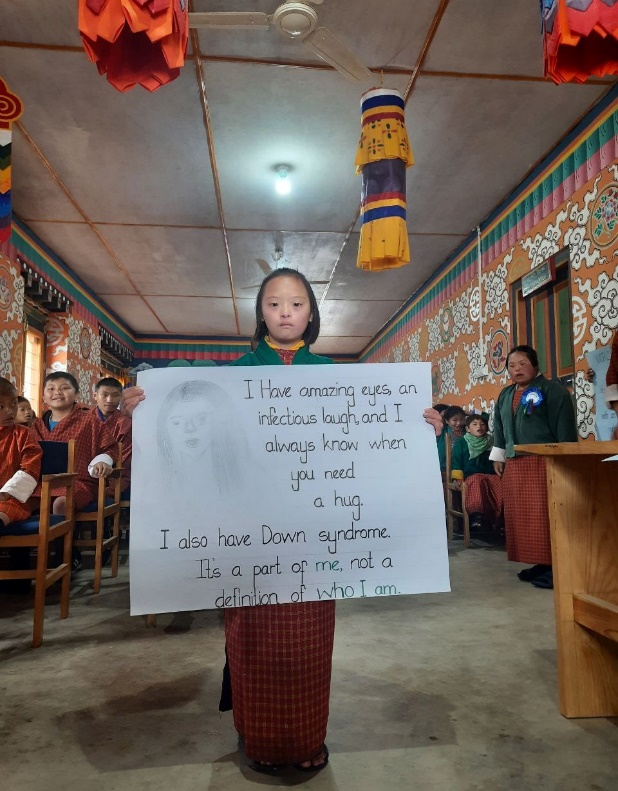 I Have amazing eyes, an
infectious laugh, and I
always know when
you need
a hug.
I also have Down syndrome.
It's a part of me, not a
definition of who I am.